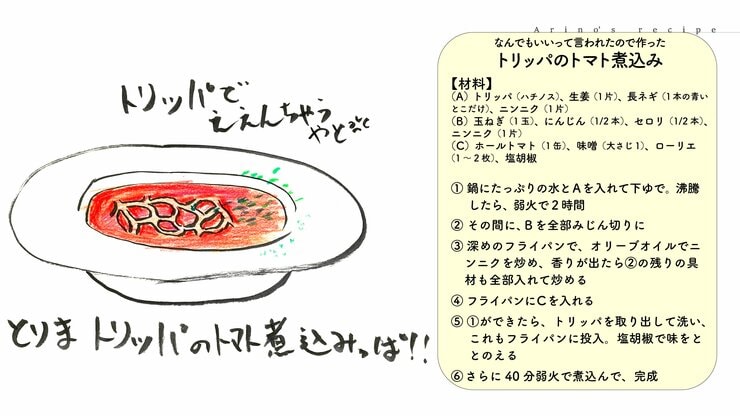 Arino's recipe
なんでもいいって言われたので作った
トリッパのトマト煮込み
【材料】
(A)トリッパ(ハチノス)、生姜(1片)、長ネギ(1本の青い
とこだけ)、ニンニク(1片)
(B)玉ねぎ(1玉)、にんじん(1/2本)、セロリ(1/2本)、
ニンニク(1片)
(C)ホールトマト(1缶)、味噌(大さじ1)、ローリエ
(1〜2枚)、塩胡椒
①鍋にたっぷりの水とAを入れて下ゆで。沸騰
したら、弱火で2時間
②その間に、Bを全部みじん切りに
③深めのフライパンで、オリーブオイルでニ
ンニクを炒め、香りが出たら②の残りの具
材も全部入れて炒める
④フライパンにCを入れる
⑤①ができたら、トリッパを取り出して洗い、
これもフライパンに投入。塩胡椒で味をと
とのえる
⑥さらに40分弱火で煮込んで、完成
トリッパで
ええんちゃう
やと
とりま トリッパのトマト煮込みっぱ!!